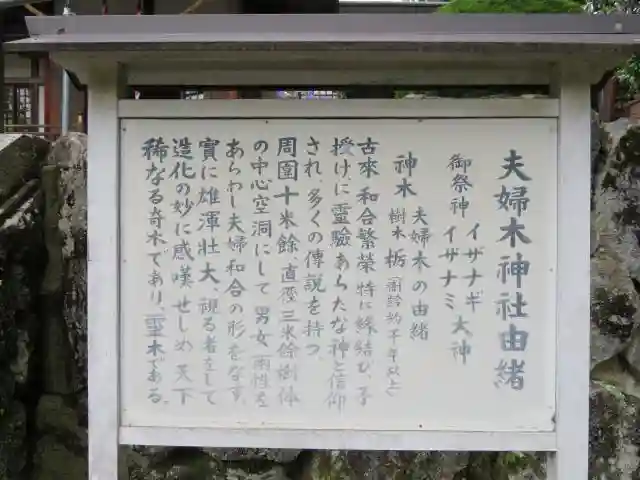 夫婦木神社由緒
御祭神 イザナギ
イザナミ 大神
夫婦木の由緒
神木 樹木 栃 (樹齢約千年以上)
古來和合繁榮特に縁結び、子
授けに靈驗あらたな神と信仰
され多くの傳説を持つ
周圍十米餘、直徑三米餘樹体
の中心空洞にして男女両性を
あらわし夫婦和合の形をなす、
實に雄渾壮大、視る者をして
造化の妙に感嘆せしめ天下
稀なる奇木であり、霊木である。